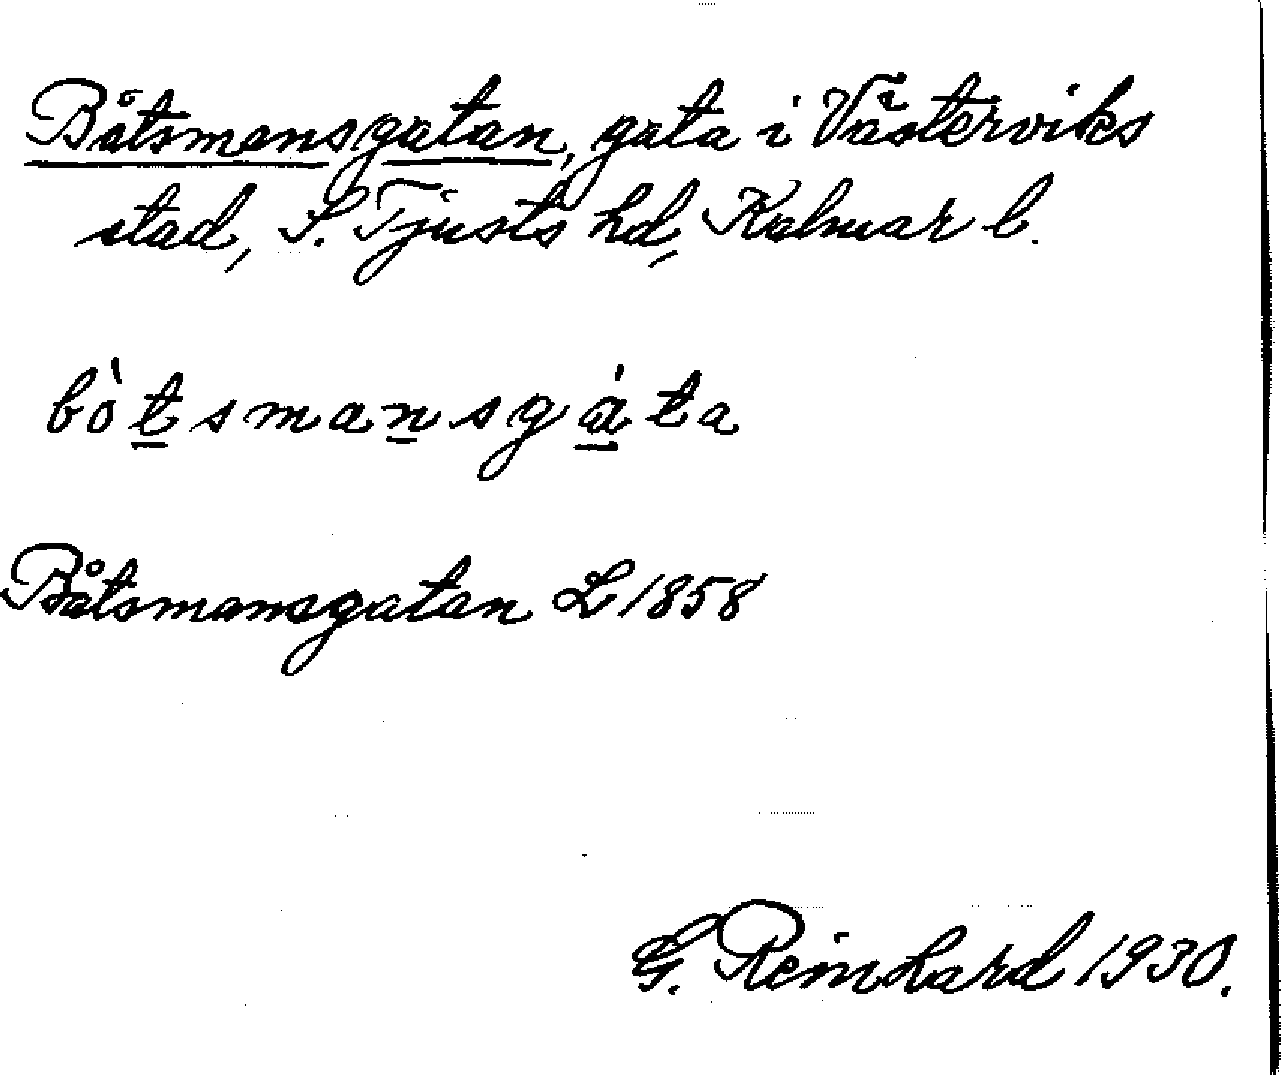 Båtsmansgatan, gata i Västerviks
stad, S. Tjusts hd, Kalmar l.
bòtsmansgáta
Båtsmansgatan L 1858
G. Reinhard 1930.